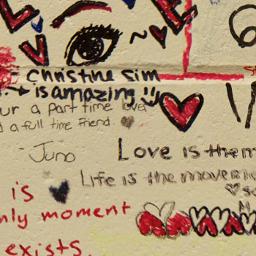 Christine Sim
is amazing
ur a part time lova
d a full time friend
- Juno
Love is them
Life is the maveric
is
nly moment
exists.